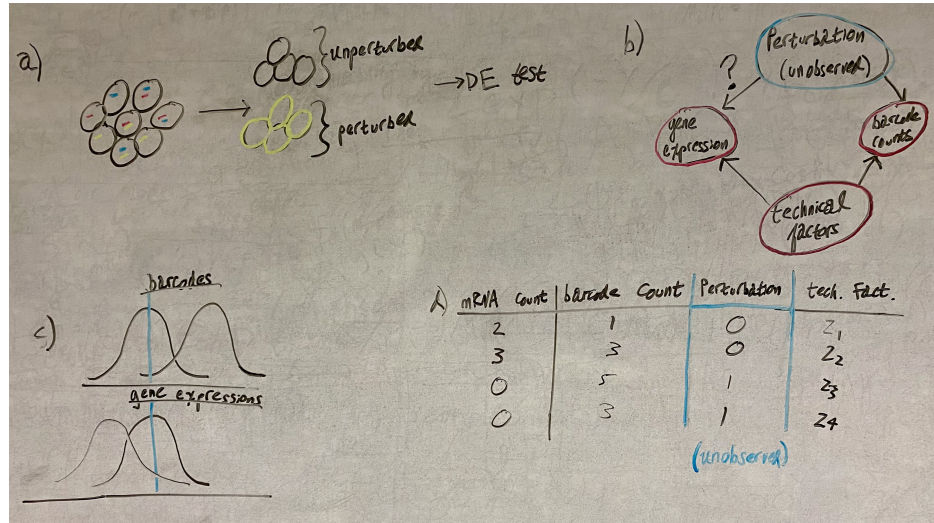 a)
unperturbed
perturbed
→DE test
b)
Perturbation
(unobserved)
?
gene
expression
barcode
counts
technical
factors
c)
barcodes
gene expressions
d)
mRNA count | barcode count | Perturbation | tech. Fact.
2 1 0 Z1
3 3 0 Z2
0 5 1 Z3
0 3 1 Z4
(unobserved)